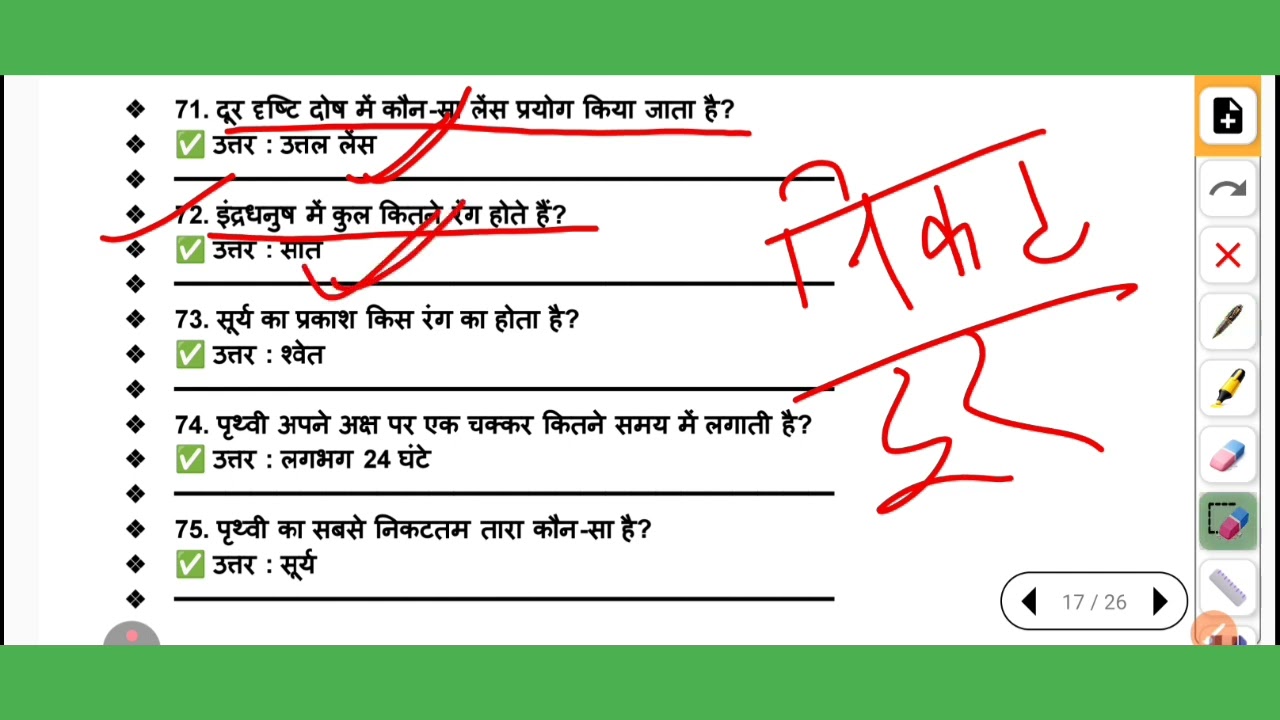 ❖ 71. दूर दृष्टि दोष में कौन-सा लेंस प्रयोग किया जाता है?
❖ ✅ उत्तर : उत्तल लेंस
❖
❖ 72. इंद्रधनुष में कुल कितने रंग होते हैं?
❖ ✅ उत्तर : सात
❖
❖ 73. सूर्य का प्रकाश किस रंग का होता है?
❖ ✅ उत्तर : श्वेत
❖
❖ 74. पृथ्वी अपने अक्ष पर एक चक्कर कितने समय में लगाती है?
❖ ✅ उत्तर : लगभग 24 घंटे
❖
❖ 75. पृथ्वी का सबसे निकटतम तारा कौन-सा है?
❖ ✅ उत्तर : सूर्य
❖
निकट
दूर
17 / 26